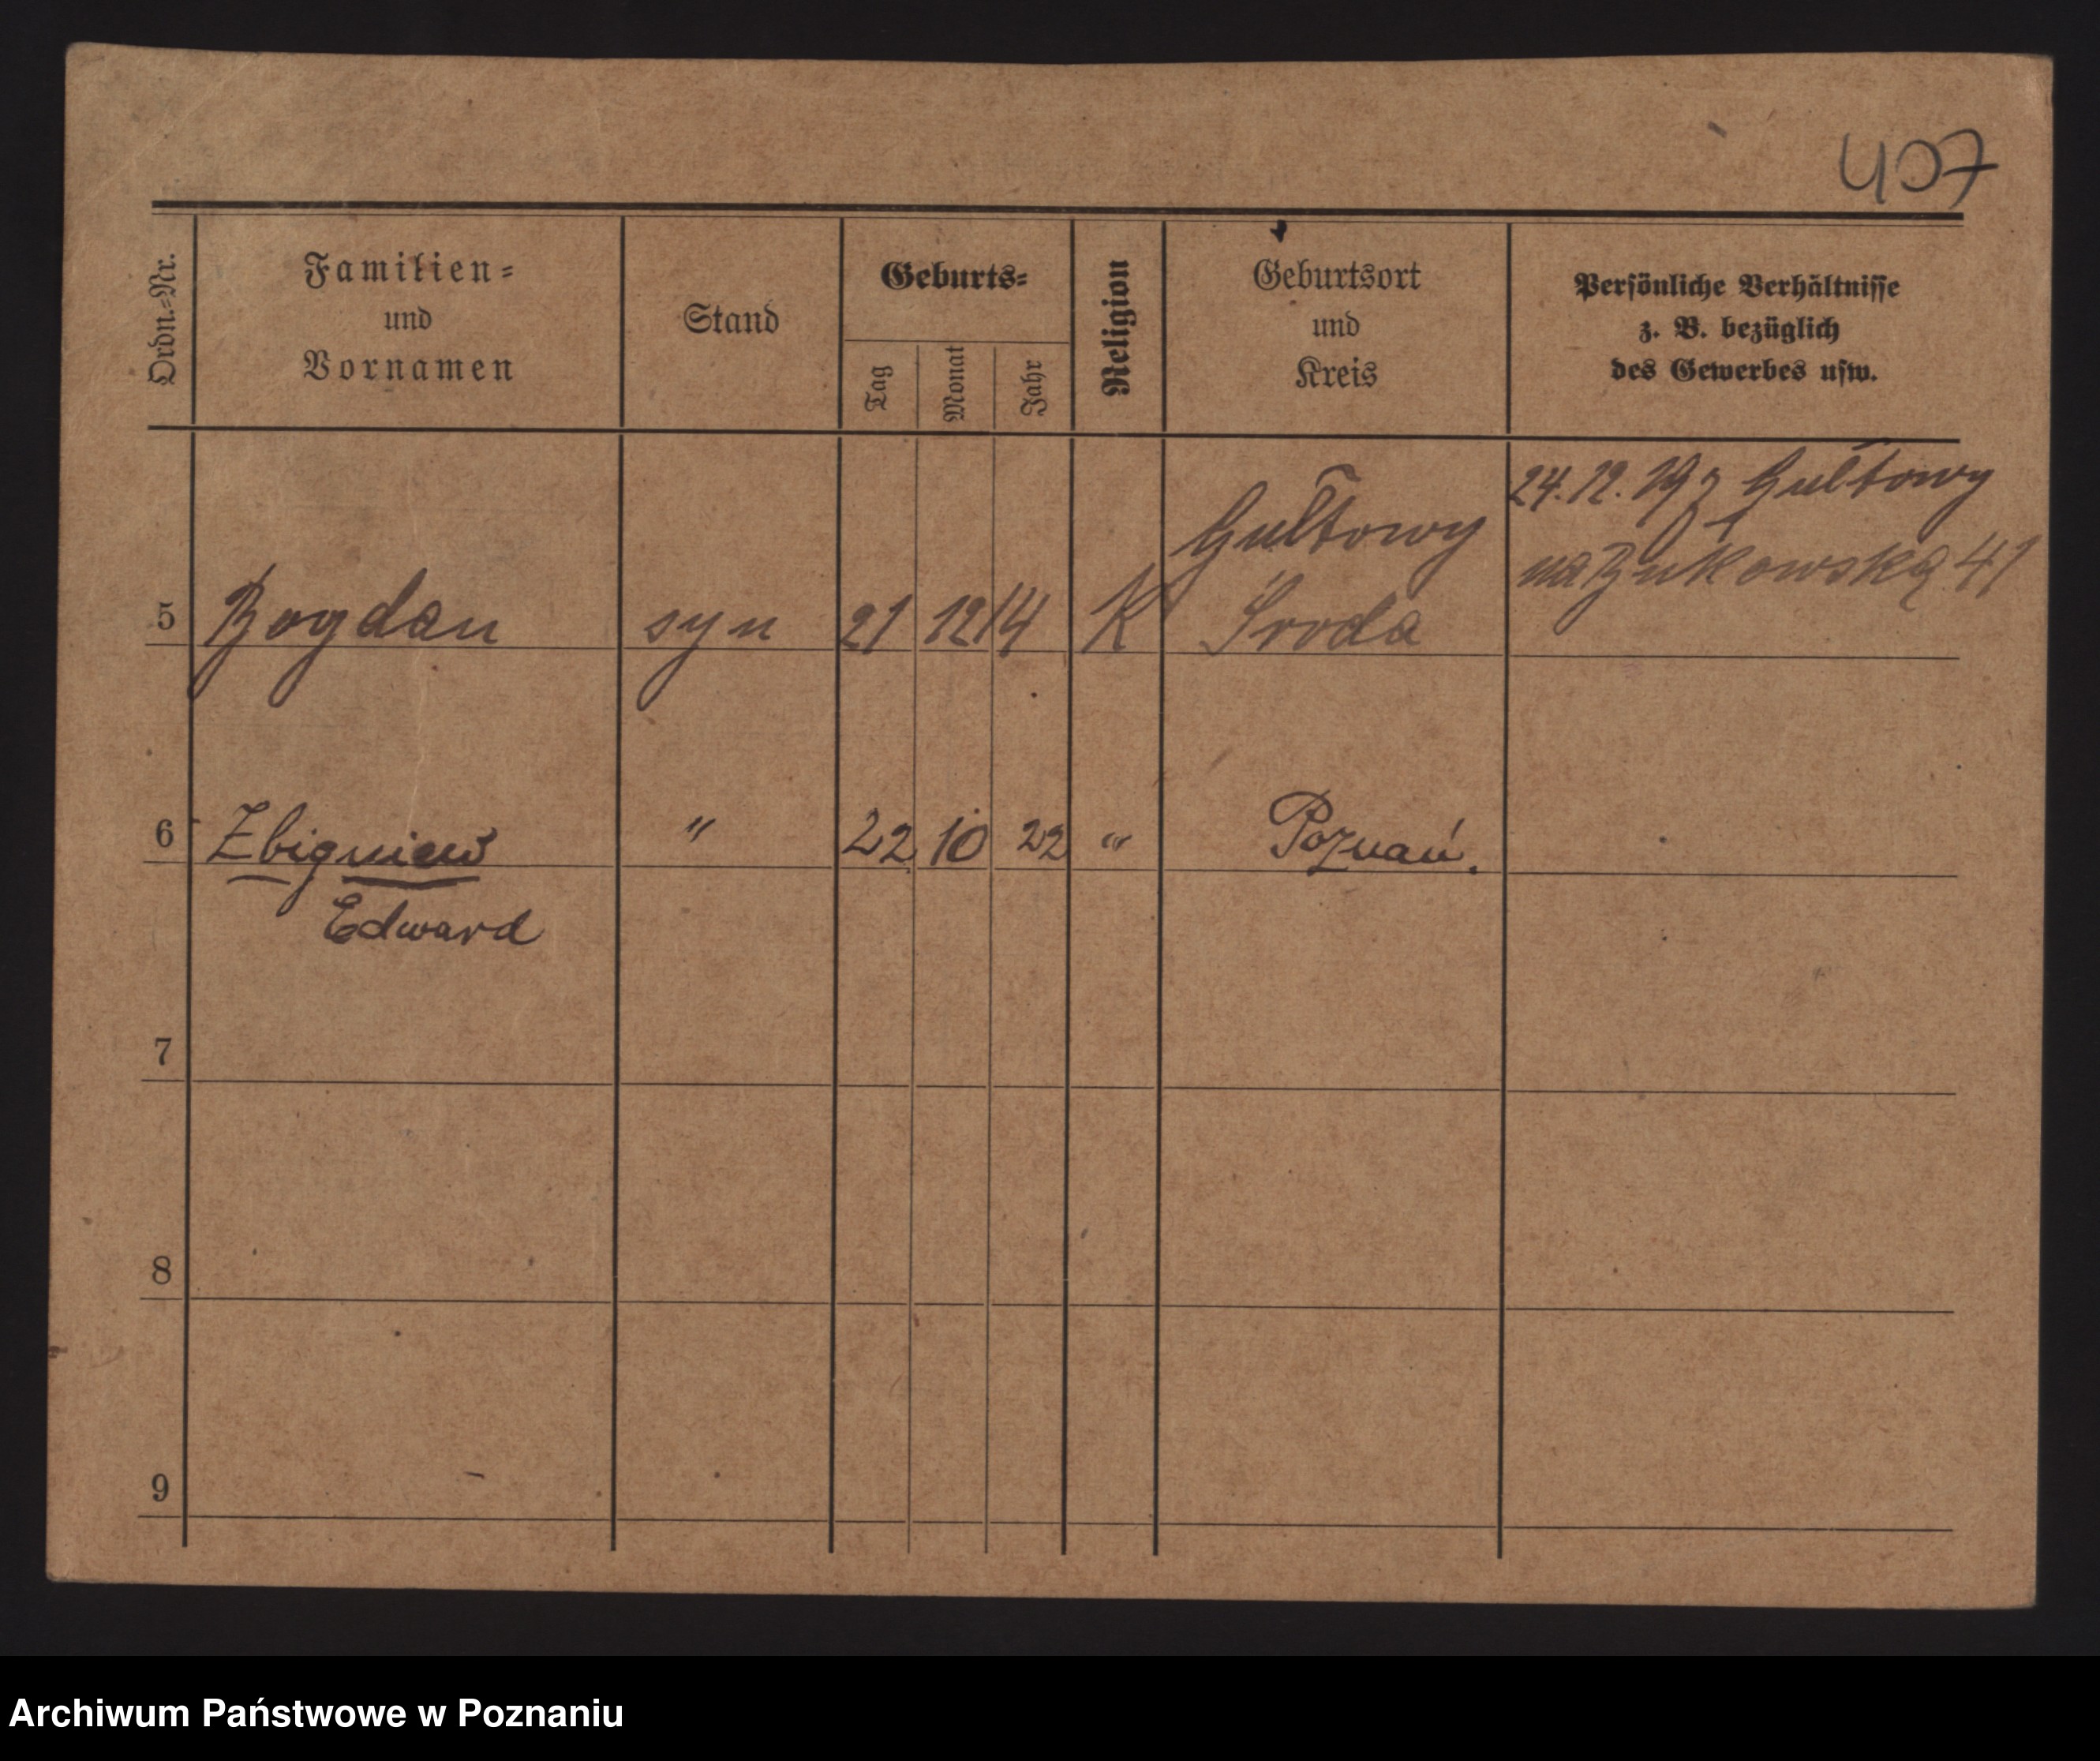 407
Ordn.-Nr.
Familien-
und
Vornamen
Stand
Geburts-
Tag
Monat
Jahr
Religion
Geburtsort
und
Kreis
Persönliche Verhältnisse
z. B. bezüglich
des Gewerbes usw.
24.12.19 z Gułtowy
na Bukowską 41
Gułtowy
5 Bogdan syn 21 12 14 K Środa
6 Zbigniew " 22 10 22 " Poznań.
Edward
7
8
9
Archiwum Państwowe w Poznaniu